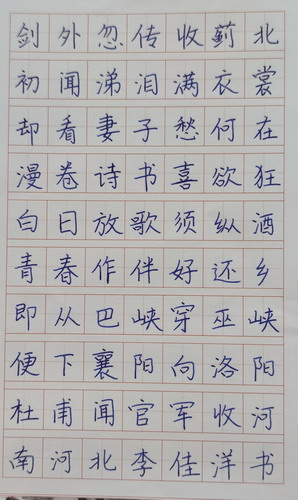 剑外忽传收蓟北
初闻涕泪满衣裳
却看妻子愁何在
漫卷诗书喜欲狂
白日放歌须纵酒
青春作伴好还乡
即从巴峡穿巫峡
便下襄阳向洛阳
杜甫闻官军收河
南河北李佳洋书